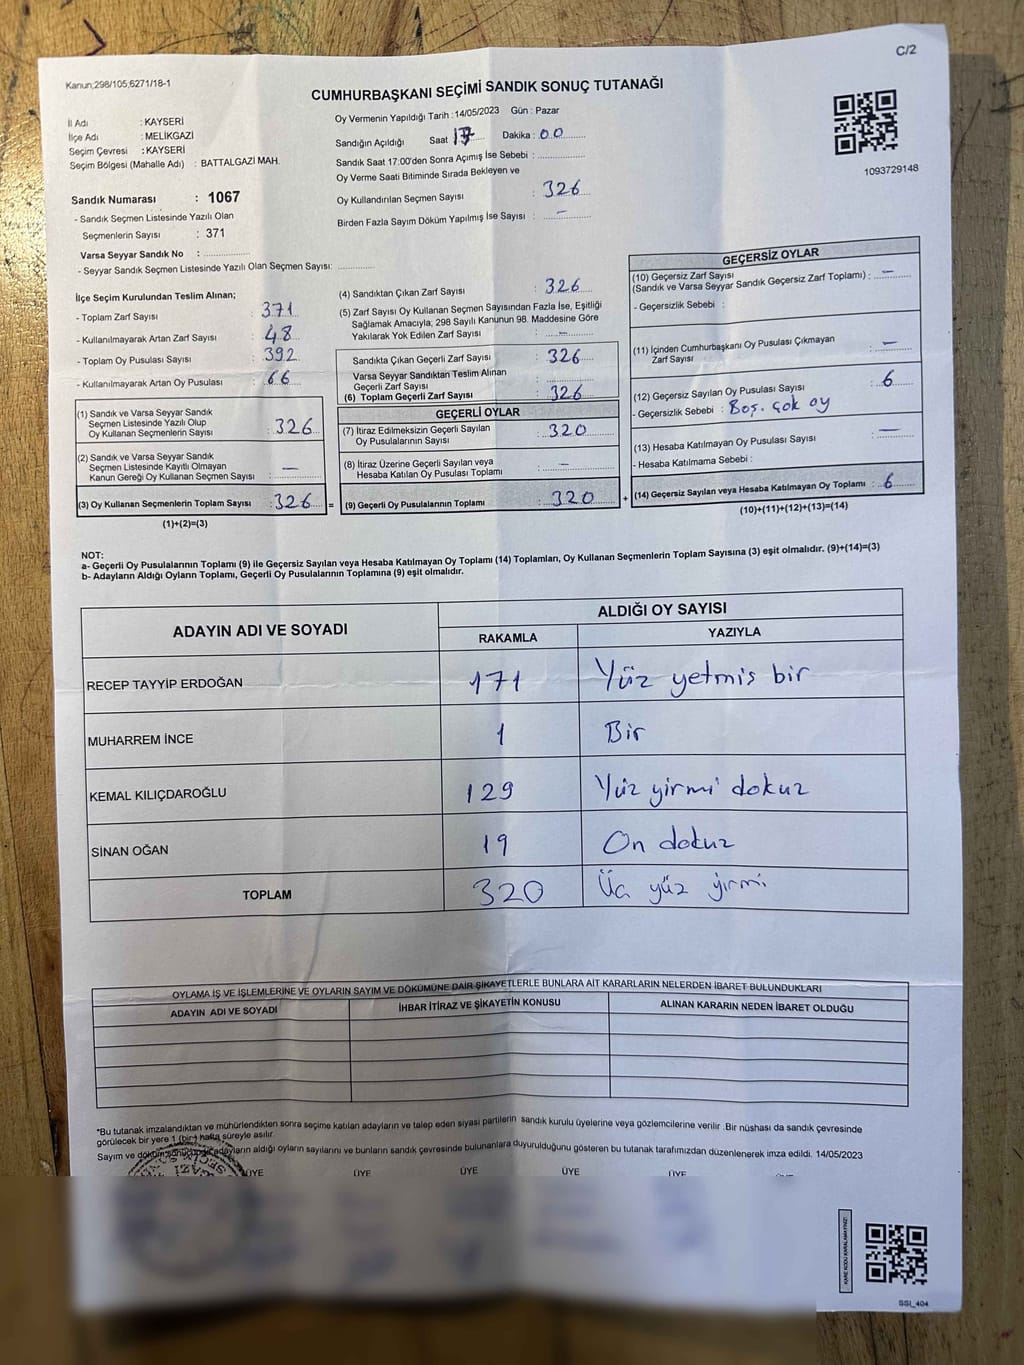 C/2
Kanun;298/105,6271/18-1
CUMHURBAŞKANI SEÇİMİ SANDIK SONUÇ TUTANAĞI
İl Adı : KAYSERİ
İlçe Adı : MELİKGAZİ
Seçim Çevresi : KAYSERİ
Seçim Bölgesi (Mahalle Adı) : BATTALGAZİ MAH.
Oy Vermenin Yapıldığı Tarih :14/05/2023 Gün : Pazar
Sandığın Açıldığı Saat 17 Dakika : 00
Sandık Saat 17:00'den Sonra Açımış İse Sebebi :
Oy Verme Saati Bitiminde Sırada Bekleyen ve
Oy Kullandırılan Seçmen Sayısı : 326
Birden Fazla Sayım Döküm Yapılmış İse Sayısı : -
1093729148
Sandık Numarası : 1067
- Sandık Seçmen Listesinde Yazılı Olan
Seçmenlerin Sayısı : 371
Varsa Seyyar Sandık No :
- Seyyar Sandık Seçmen Listesinde Yazılı Olan Seçmen Sayısı:
İlçe Seçim Kurulundan Teslim Alınan;
- Toplam Zarf Sayısı : 371
- Kullanılmayarak Artan Zarf Sayısı : 48
- Toplam Oy Pusulası Sayısı : 392
- Kullanılmayarak Artan Oy Pusulası : 66
(1) Sandık ve Varsa Seyyar Sandık
Seçmen Listesinde Yazılı Olup
Oy Kullanan Seçmenlerin Sayısı : 326
(2) Sandık ve Varsa Seyyar Sandık
Seçmen Listesinde Kayıtlı Olmayan
Kanun Gereği Oy Kullanan Seçmen Sayısı : -
(3) Oy Kullanan Seçmenlerin Toplam Sayısı : 326 =
(1)+(2)=(3)
(4) Sandıktan Çıkan Zarf Sayısı : 326
(5) Zarf Sayısı Oy Kullanan Seçmen Sayısından Fazla İse, Eşitliği
Sağlamak Amacıyla; 298 Sayılı Kanunun 98. Maddesine Göre
Yakılarak Yok Edilen Zarf Sayısı : -
Sandıkta Çıkan Geçerli Zarf Sayısı : 326
Varsa Seyyar Sandıktan Teslim Alınan
Geçerli Zarf Sayısı :
(6) Toplam Geçerli Zarf Sayısı : 326
GEÇERLİ OYLAR
(7) İtiraz Edilmeksizin Geçerli Sayılan
Oy Pusulalarının Sayısı : 320
(8) İtiraz Üzerine Geçerli Sayılan veya
Hesaba Katılan Oy Pusulası Toplamı : -
(9) Geçerli Oy Pusulalarının Toplamı : 320 +
GEÇERSİZ OYLAR
(10) Geçersiz Zarf Sayısı
(Sandık ve Varsa Seyyar Sandık Geçersiz Zarf Toplamı) : -
- Geçersizlik Sebebi :
(11) İçinden Cumhurbaşkanı Oy Pusulası Çıkmayan
Zarf Sayısı : -
(12) Geçersiz Sayılan Oy Pusulası Sayısı : 6
- Geçersizlik Sebebi : Boş. çok oy
(13) Hesaba Katılmayan Oy Pusulası Sayısı : -
- Hesaba Katılmama Sebebi :
(14) Geçersiz Sayılan veya Hesaba Katılmayan Oy Toplamı : 6
(10)+(11)+(12)+(13)=(14)
NOT:
a- Geçerli Oy Pusulalarının Toplamı (9) ile Geçersiz Sayılan veya Hesaba Katılmayan Oy Toplamı (14) Toplamları, Oy Kullanan Seçmenlerin Toplam Sayısına (3) eşit olmalıdır. (9)+(14)=(3)
b- Adayların Aldığı Oyların Toplamı, Geçerli Oy Pusulalarının Toplamına (9) eşit olmalıdır.
ADAYIN ADI VE SOYADI
ALDIĞI OY SAYISI
RAKAMLA YAZIYLA
RECEP TAYYİP ERDOĞAN 171 Yüz yetmis bir
MUHARREM İNCE 1 Bir
KEMAL KILIÇDAROĞLU 129 Yüz yirmi dokuz
SİNAN OĞAN 19 On dokuz
TOPLAM 320 Üç yüz yirmi
OYLAMA İŞ VE İŞLEMLERİNE VE OYLARIN SAYIM VE DÖKÜMÜNE DAİR ŞİKAYETLERLE BUNLARA AİT KARARLARIN NELERDEN İBARET BULUNDUKLARI
ADAYIN ADI VE SOYADI İHBAR İTİRAZ VE ŞİKAYETİN KONUSU ALINAN KARARIN NEDEN İBARET OLDUĞU
*Bu tutanak imzalandıktan ve mühürlendikten sonra seçime katılan adayların ve talep eden siyasi partilerin sandık kurulu üyelerine veya gözlemcilerine verilir .Bir nüshası da sandık çevresinde
görülecek bir yere 1 (bir) hafta süreyle asılır.
Sayım ve döküm sonucunda adayların aldığı oyların sayılarını ve bunların sandık çevresinde bulunanlara duyurulduğunu gösteren bu tutanak tarafımızdan düzenlenerek imza edildi. 14/05/2023
ÜYE ÜYE ÜYE ÜYE ÜYE
KARE KODU KARALAMAYINIZ!
SSI_404